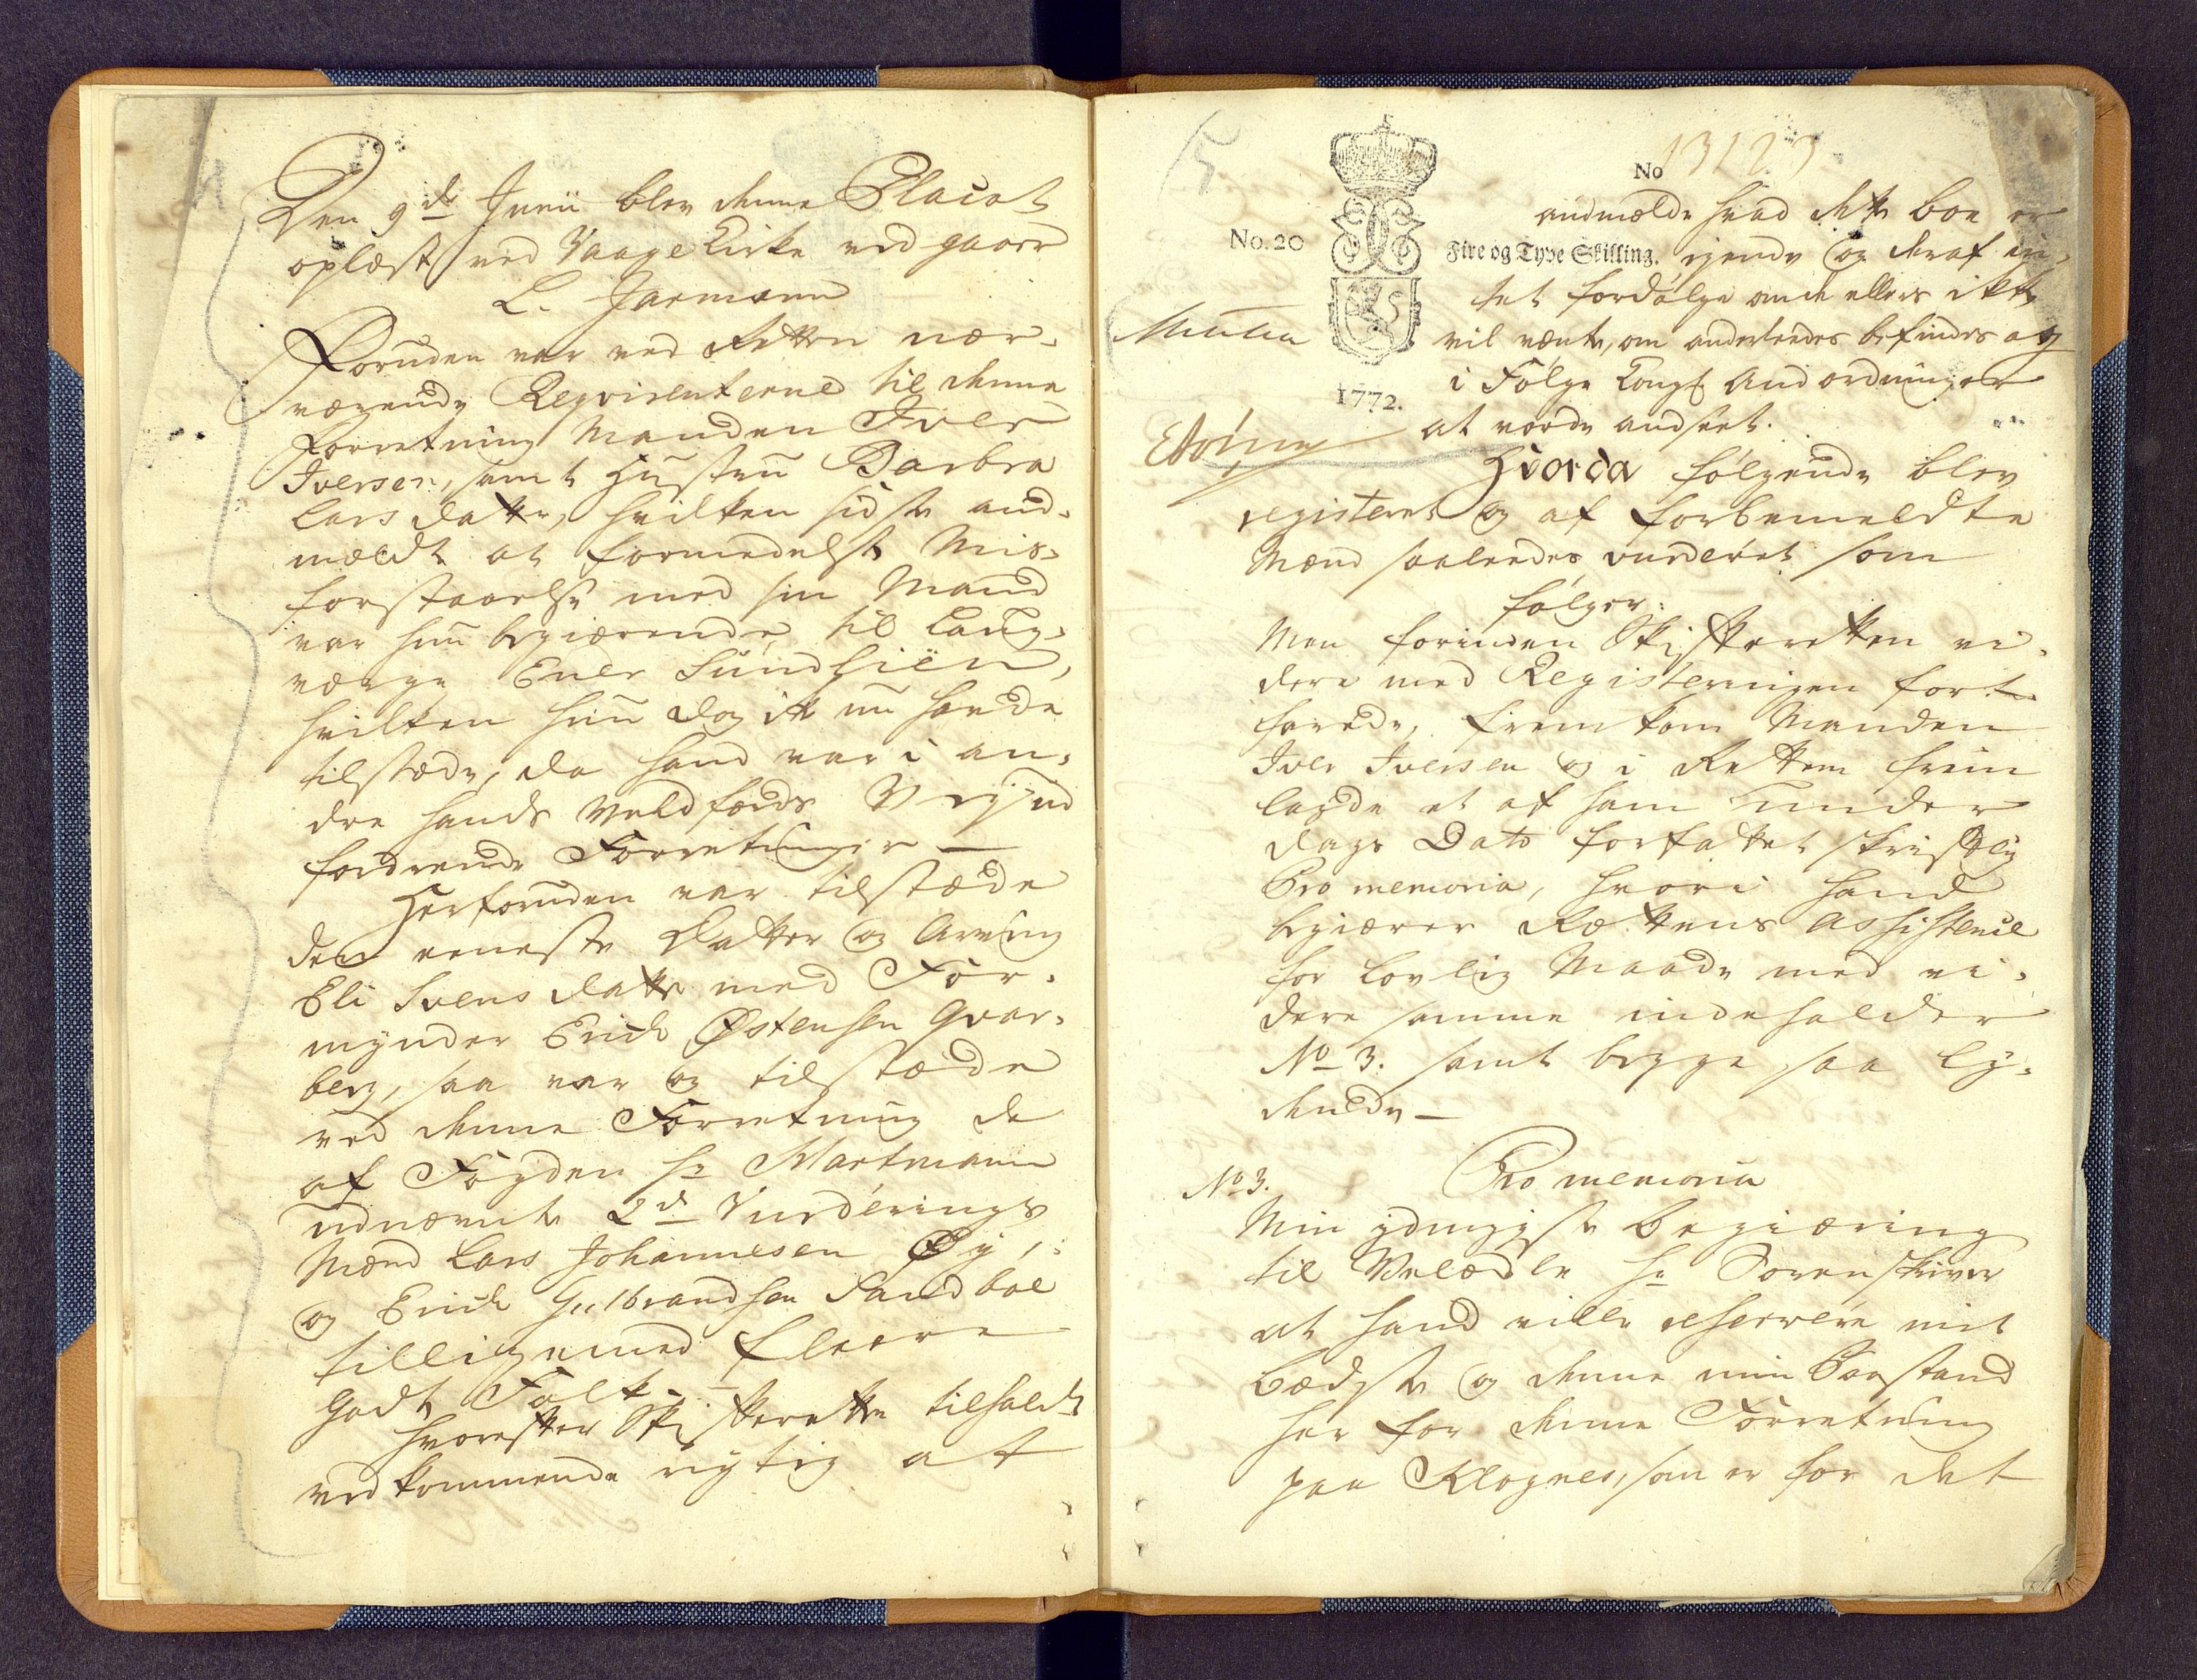 Den 9de Junii blev denne Placat
oplæst ved Vaage Kirke ved gaard
L. Jarmann
Foruden var ved Retten nær-
værende Reqvirenterne til denne
Forretning Manden Iver
Iversen, samt Hustru Barbra
Lars datter, hvilken sidste and-
mældte at formedelst Mis-
forstaaelse med sin Mand
var hun begiærende til Laug-
værge Ener Sundhiën,
hvilken hun dog ik nu havde
tilstæde, da hand var i an-
dre hands Velb
fordrende Forretninger
Herforuden var tilstæde
den eeneste Datter og Arving
Eli Svens datter med For-
mynder Erich Østensen Qvar-
berg, saa var og tilstæde
ved denne Forretning de
af Fogden Hr Hartmann
udnævnte 2de Vurderings
Mænd Lars Johannesen Øy,
og Erich Gulbrandsen Sandboe
tilligemed fleere
godt Folk.
Hvorefter Skifteretten tilholdt
vedkommende rigtig at
5
No 13123
No. 20
Fire og Tyve Skilling.
1772.
andmælde hvad dette boe er
ejende og deraf in-
tet fordølge om de ellers ikke
vil vænte, om anderleedes befindes at
i Følge Kongl. Andordninger
at vorde andseet.
Hvorda følgende blev
registeret og af forbemeldte
Mænd saaleedes vurderet som
følger:
Men forinden Skifteretten vi-
dere med Registeringen fort-
farede, fremkom Manden
Iver Iversen og i Retten frem
lagde et af ham under
dags Dato forfattet skriftlig
Pro memoria, hvori hand
begiærer Rettens Assistence
for Lovlig Maade med vi-
dere samme indeholder
No 3. samt begge saa ly-
dende —
No 3. Pro memoria
Min ydmygste begiæring
til Velædle Hr Sorenskriver
at hand ville observere mit
bædste og denne min Paastand
her for denne Forretning
paa Klognes, som er for det